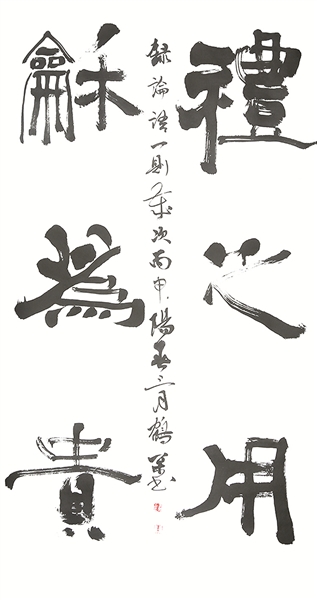 禮之用
龢為貴
録論語一則歲次丙申陽春三月鶴